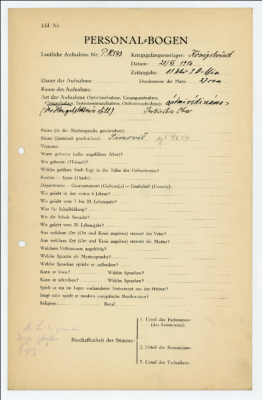 Lfd. Nr.
PERSONAL-BOGEN
Lautliche Aufnahme Nr.: P.K593 Kriegsgefangenenlager: Königsbrück
Datum: 1916
Zeitangabe:
Dauer der Aufnahme: Durchmesser der Platte: 27 cm
Raum der Aufnahme:
Art der Aufnahme (Sprechaufnahme, Gesangsaufnahme,
Choraufnahme, Instrumentenaufnahme, Orchesteraufnahme):
Serbischer Chor
Name (in der Muttersprache geschrieben):
Name (lateinisch geschrieben): Simović
Vorname:
Wann geboren (oder ungefähres Alter)?
Wo geboren (Heimat)?
Welche größere Stadt liegt in der Nähe des Geburtsortes?
Kanton — Kreis (Ujedz):
Departement — Gouvernement (Gubernija) — Grafschaft (County):
Wo gelebt in den ersten 6 Jahren?
Wo gelebt vom 7. bis 20. Lebensjahr?
Was für Schulbildung?
Wo die Schule besucht?
Wo gelebt vom 20. Lebensjahr?
Aus welchem Ort (Ort und Kreis angeben) stammt der Vater?
Aus welchem Ort (Ort und Kreis angeben) stammt die Mutter?
Welchem Volksstamm angehörig?
Welche Sprache als Muttersprache?
Welche Sprachen spricht er außerdem?
Kann er lesen? Welche Sprachen?
Kann er schreiben? Welche Sprachen?
Spielt er ein im Lager vorhandenes Instrument aus der Heimat?
Singt oder spielt er modern europäische Musikweisen?
Religion: Beruf:
1. Urteil des Fachmannes
(des Assistenten):
Beschaffenheit der Stimme:
2. Urteil des Kommissars:
3. Urteil des Technikers: